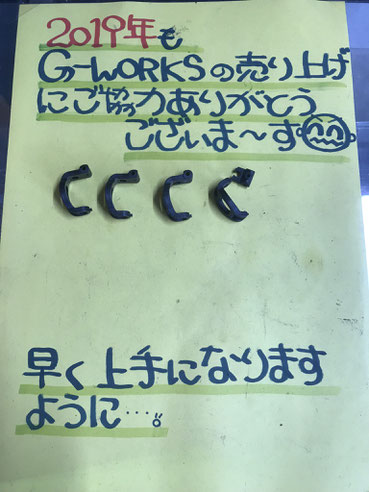 2019年も
G-WORKSの売り上げ
にご協力ありがとう
ございま〜す
早く上手になります
ように…。